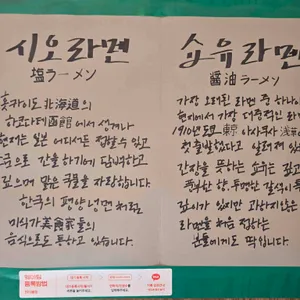 시오라멘
塩ラーメン
홋카이도 北海道의
하코다테 函館에서 생겨나
현재는 일본 어디서든 접할수 있고
소금으로 간을 하기에 담백하고
깊으며 맑은 국물을 자랑합니다.
한국의 평양냉면처럼
미식가 美食家들의
음식으로도 통하고 있습니다.
쇼유라멘
醤油ラーメン
가장 오래된 라멘 중 하나
현재에서 가장 대중적인 라멘
1910년 도쿄 東京 아사쿠사 浅草
첫 출발했다고 알려져 있고
간장을 뜻하는 쇼유는 깊고
투명한 갈색이
깊이가 있지만 과하지않은
라멘을 처음 접하는
분들에게도 딱입니다.